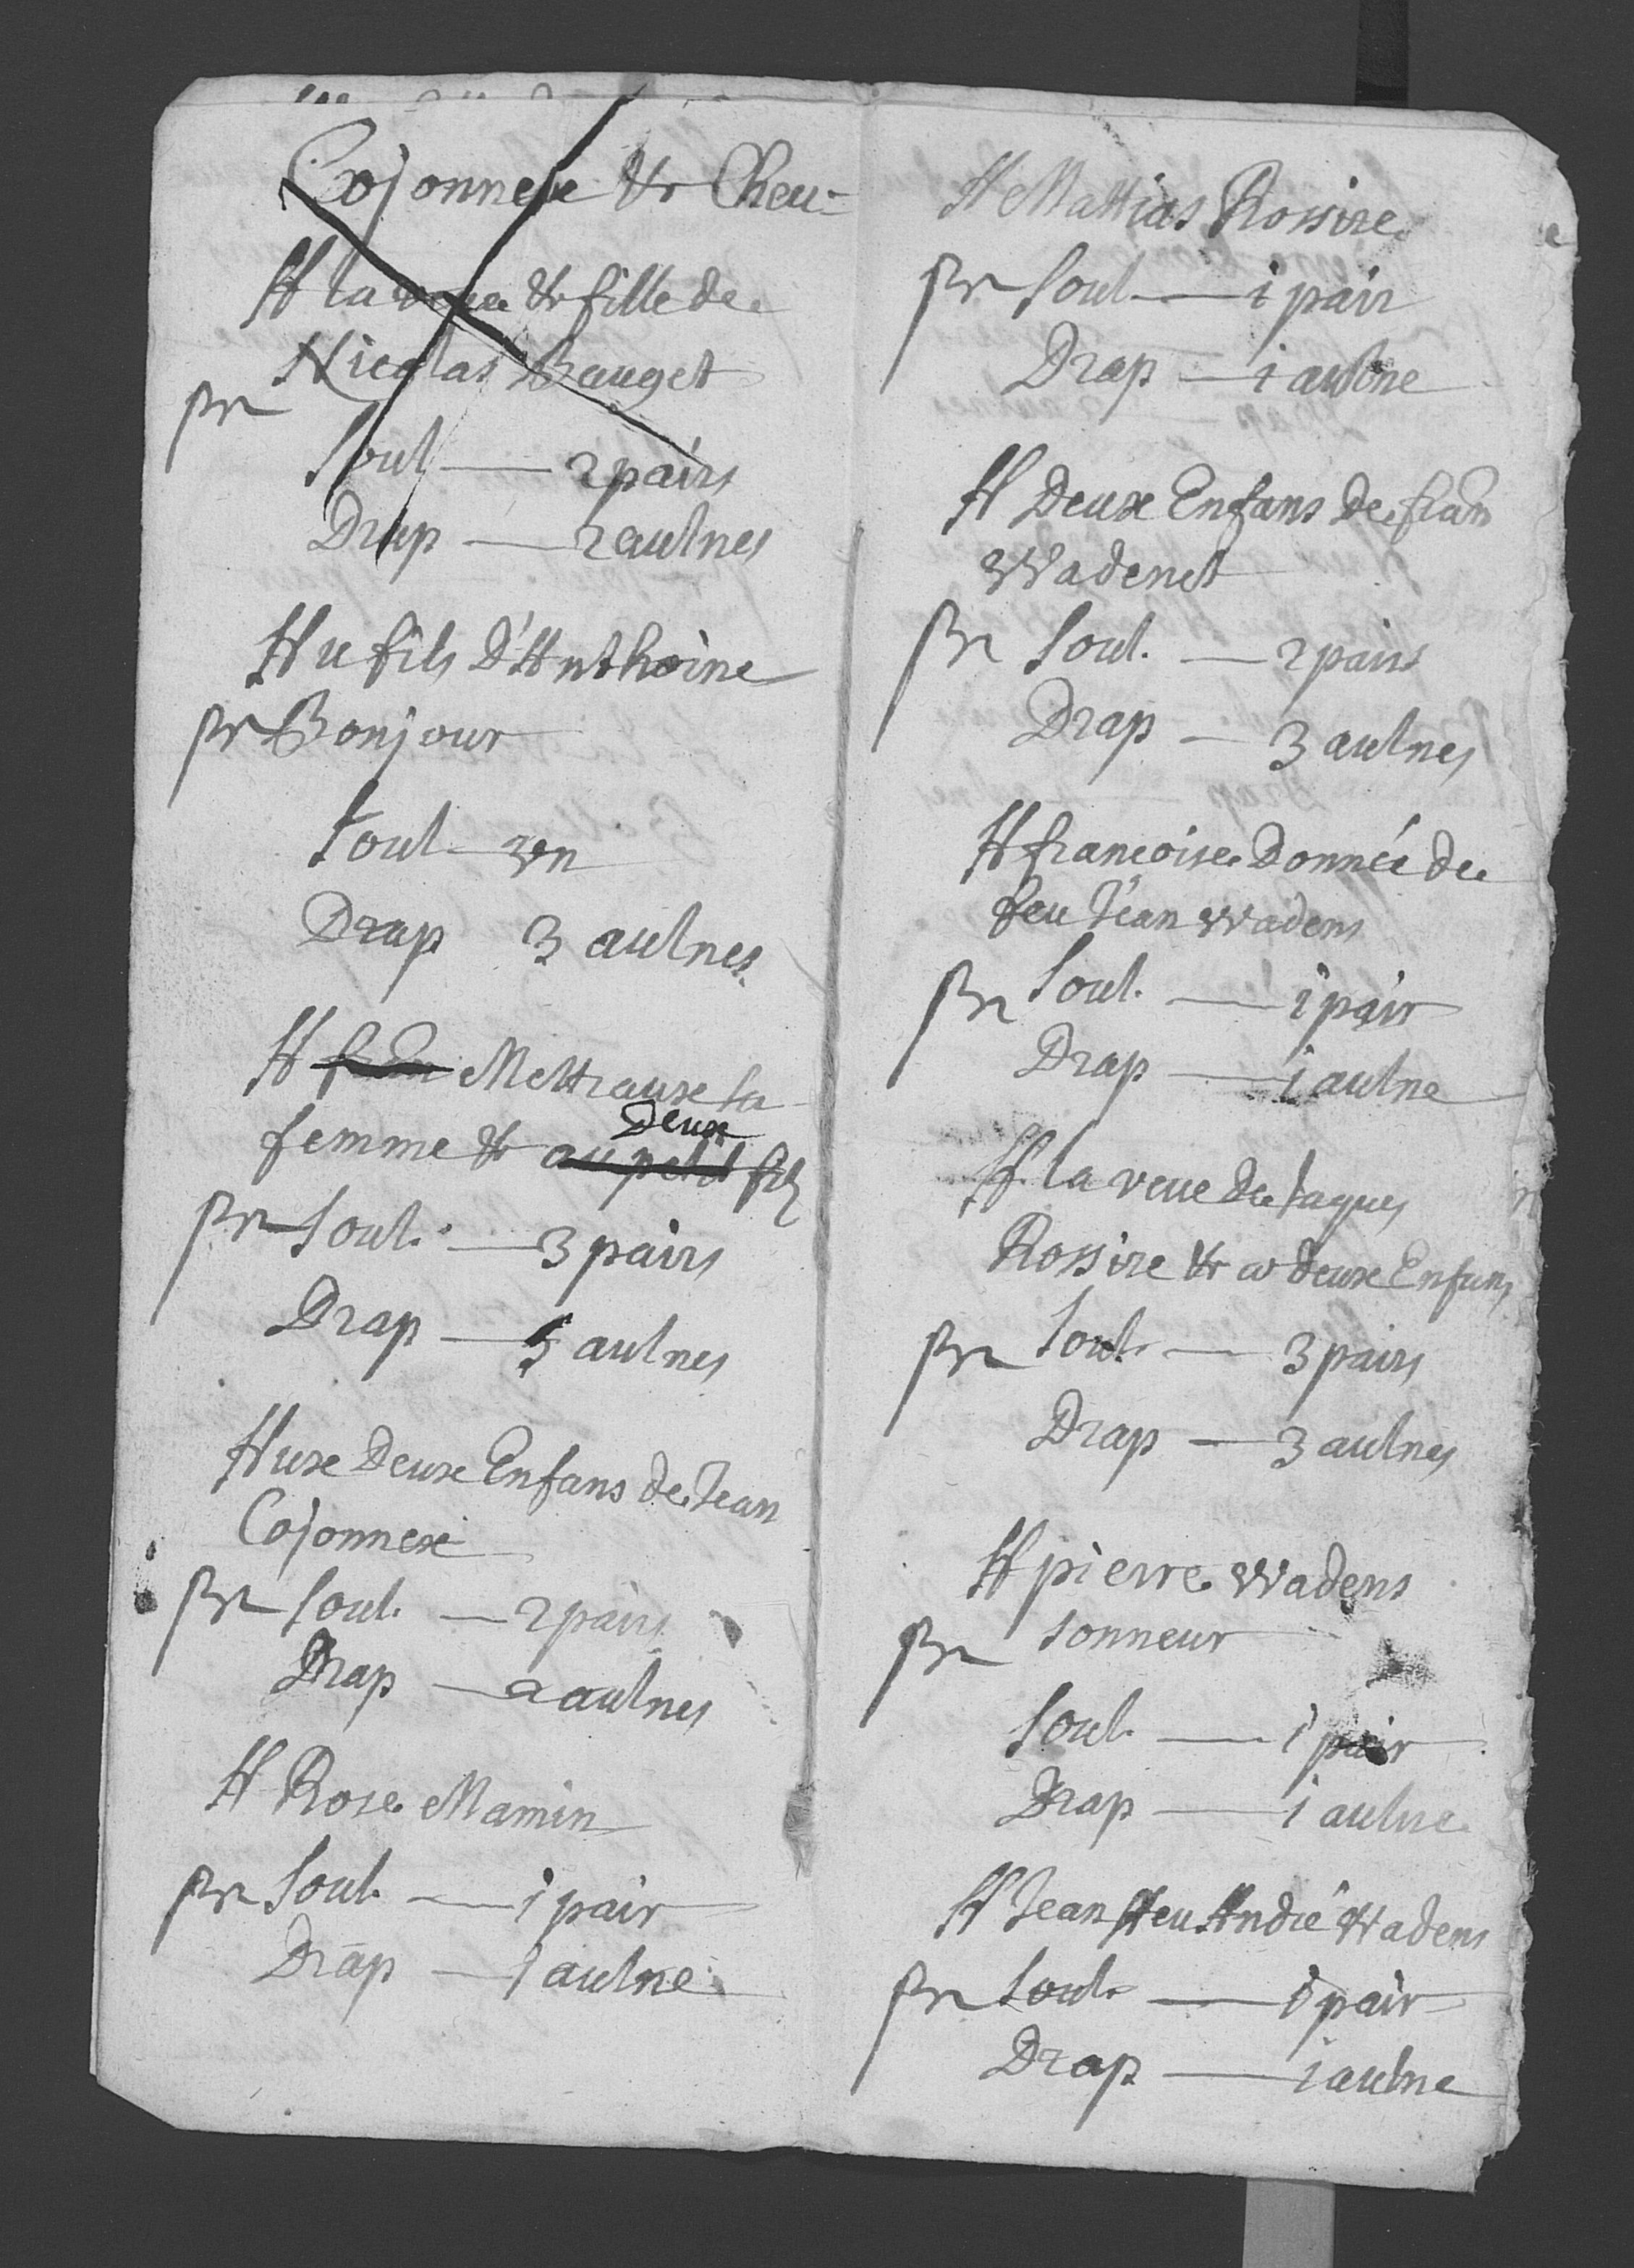 Cojonnex & Cheu=
A la veue & fille de
Nicolas Bauget
pr
Soul — 2 pairs
Drap — 2 aulnes
Au fils d'Anthoine
pr Bonjour
Soul — 3 en
Drap 3 aulnes
A Mettraux sa
femme & au petit deux fils
pr Soul. — 3 pairs
Drap — 5 aulnes
Aux deux Enfans de Jean
Cojonnex
pr Soul. — 2 pairs
Drap — 2 aulnes
A Rose Mamin
pr Soul. — 1 pair
Drap — 1 aulne
A Mattias Rossire
pr Soul — 1 pair
Drap — 1 aulne
A Deux Enfans de
Wadenct
pr Soul. — 2 pairs
Drap — 3 aulnes
A francoise Donnée de
feu Jean Wadens
pr Soul. — 1 pair
Drap — 1 aulne
A la veue de Jaques
Rossire & a deux Enfans
pr Soul. — 3 pairs
Drap — 3 aulnes
A pierre Wadens
pr sonneur
Soul — 1 pair
Drap — 1 aulne
A Jean feu André Wadens
pr Soul. — 1 pair
Drap — 1 aulne